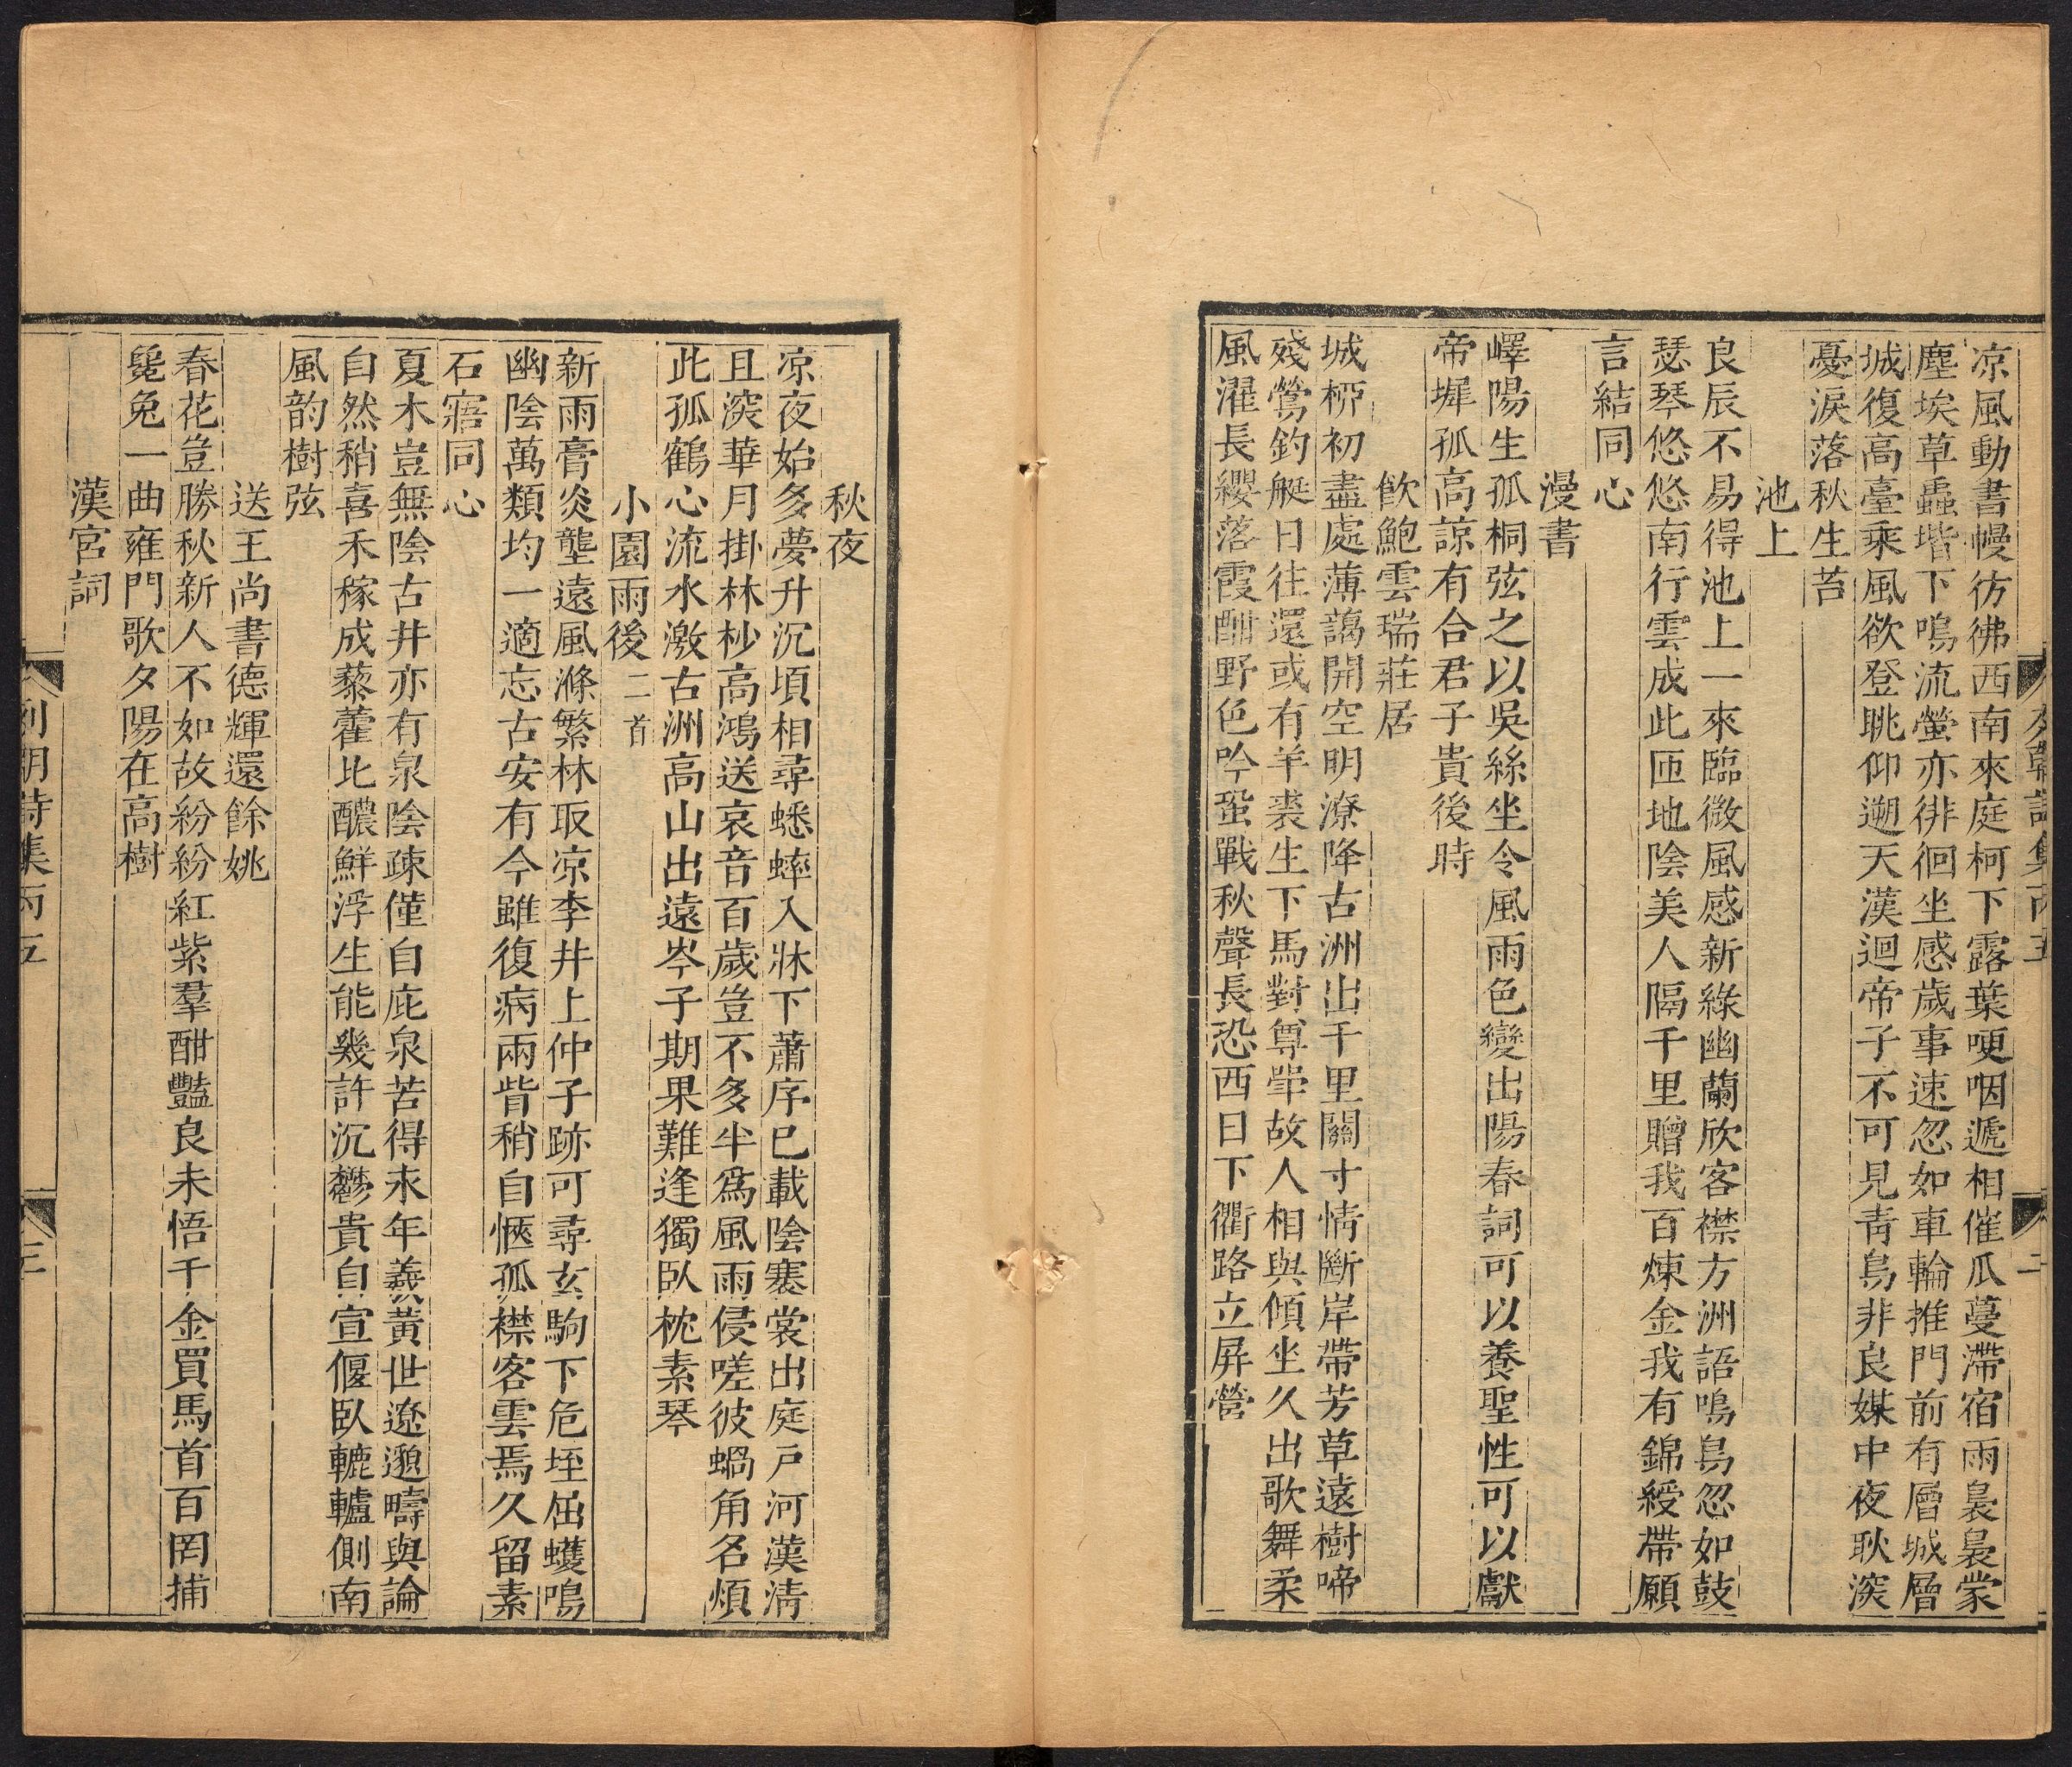 列朝詩集丙五
二
凉風動書幔彷彿西南來庭柯下露葉哽咽遞相催瓜蔓滯宿雨裊裊蒙
塵埃草蟲堦下鳴流螢亦徘徊坐感歲事速忽如車輪推門前有層城層
城復高臺乘風欲登眺仰遡天漢迴帝子不可見靑鳥非良媒中夜耿湥
憂淚落秋生苔
池上
良辰不易得池上一來臨微風感新綠幽蘭欣客襟方洲語鳴鳥忽如鼓
瑟琴悠悠南行雲成此匝地陰美人隔千里贈我百煉金我有錦綬帶願
言結同心
漫書
嶧陽生孤桐弦之以吳絲坐令風雨色變出陽春詞可以養聖性可以獻
帝墀孤高諒有合君子貴後時
飮鮑雲瑞莊居
城桺初盡處薄藹開空明潦降古洲出千里關寸情斷岸帶芳草遠樹啼
殘鶯釣艇日往還或有羊裘生下馬對尊斝故人相與傾坐久出歌舞柔
風濯長纓落霞酣野色吟蛩戰秋聲長恐西日下衢路立屛營
秋夜
凉夜始多夢升沉頃相尋蟋蟀入牀下蕭序巳載陰寋裳出庭戸河漢淸
且湥華月掛林杪高鴻送哀音百歲豈不多半爲風雨侵嗟彼蝸角名煩
此孤鶴心流水激古洲高山出遠岑子期果難逢獨臥枕素琴
小園雨後二首
新雨膏炎壟遠風滌繁林取凉李井上仲子跡可尋玄駒下危垤屈蠖鳴
幽陰萬類均一適忘古安有今雖復病兩眥稍自愜孤襟客雲焉久留素
石寤同心
夏木豈無陰古井亦有泉陰疎僅自庇泉苦得末年羲黃世遼邈疇與論
自然稍喜禾稼成藜藿比醲鮮浮生能幾許沉鬱貴自宣偃臥轆轤側南
風韵樹弦
送王尚書德輝還餘姚
春花豈勝秋新人不如故紛紛紅紫羣酣豔良未悟千金買馬首百罔捕
毚兔一曲雍門歌夕陽在高樹
漢宮詞
列朝詩集丙五
三